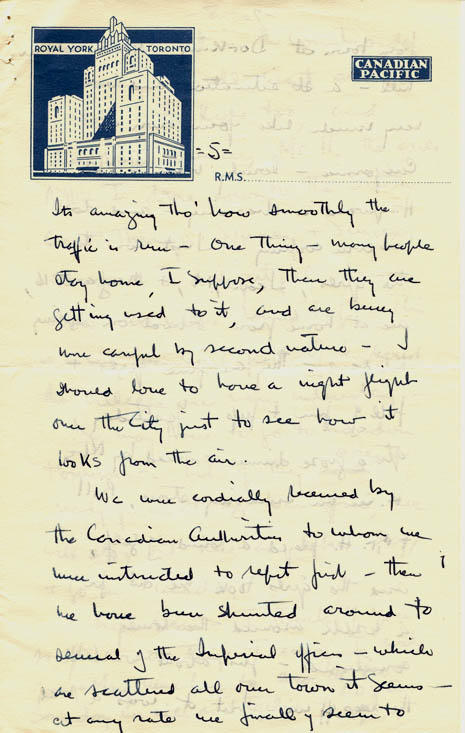 ROYAL YORK TORONTO
CANADIAN
PACIFIC
=5=
R.M.S.
Its amazing tho' how smoothly the
traffic is run - One thing - many people
stay home, I suppose, then they are
getting used to it, and are being
more careful by second nature - I
should love to have a night flight
over the City just to see how it
looks from the air.
We were cordially received by
the Canadian Authorities to whom we
were instructed to report first - then
we have been shunted around to
several of the Imperial offices - which
are scattered all over town it seems -
at any rate we finally seem to